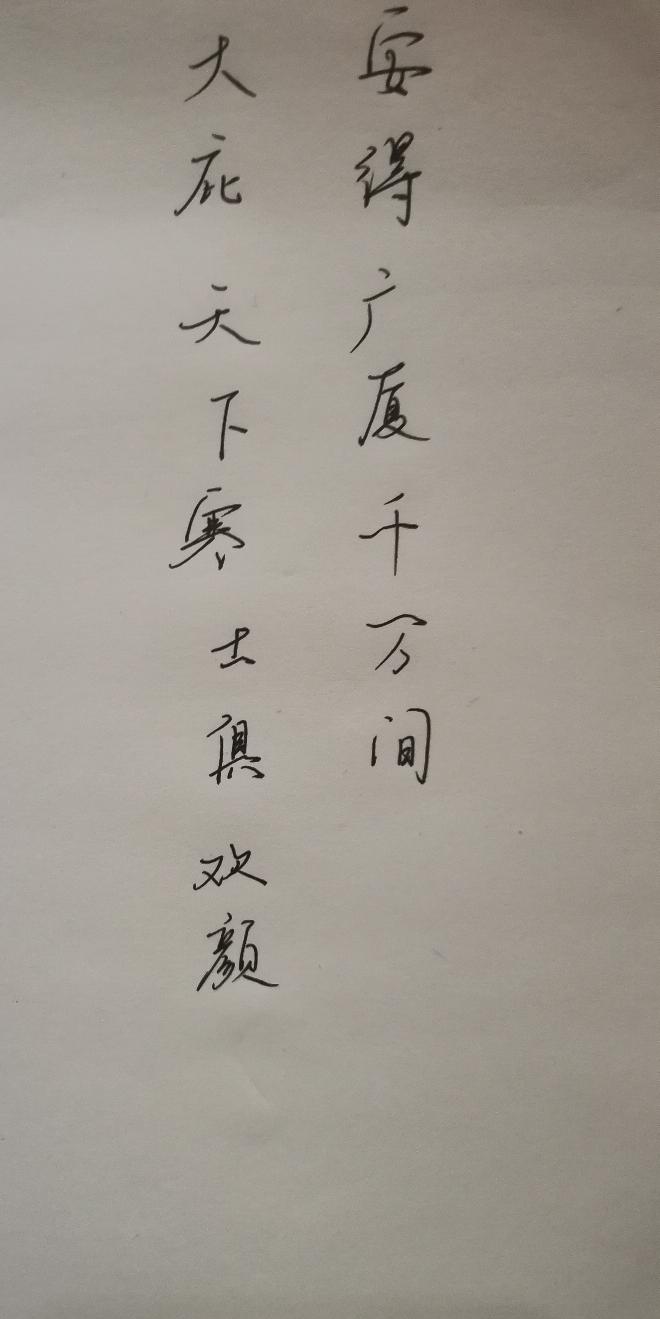 安得广厦千万间
大庇天下寒士俱欢颜